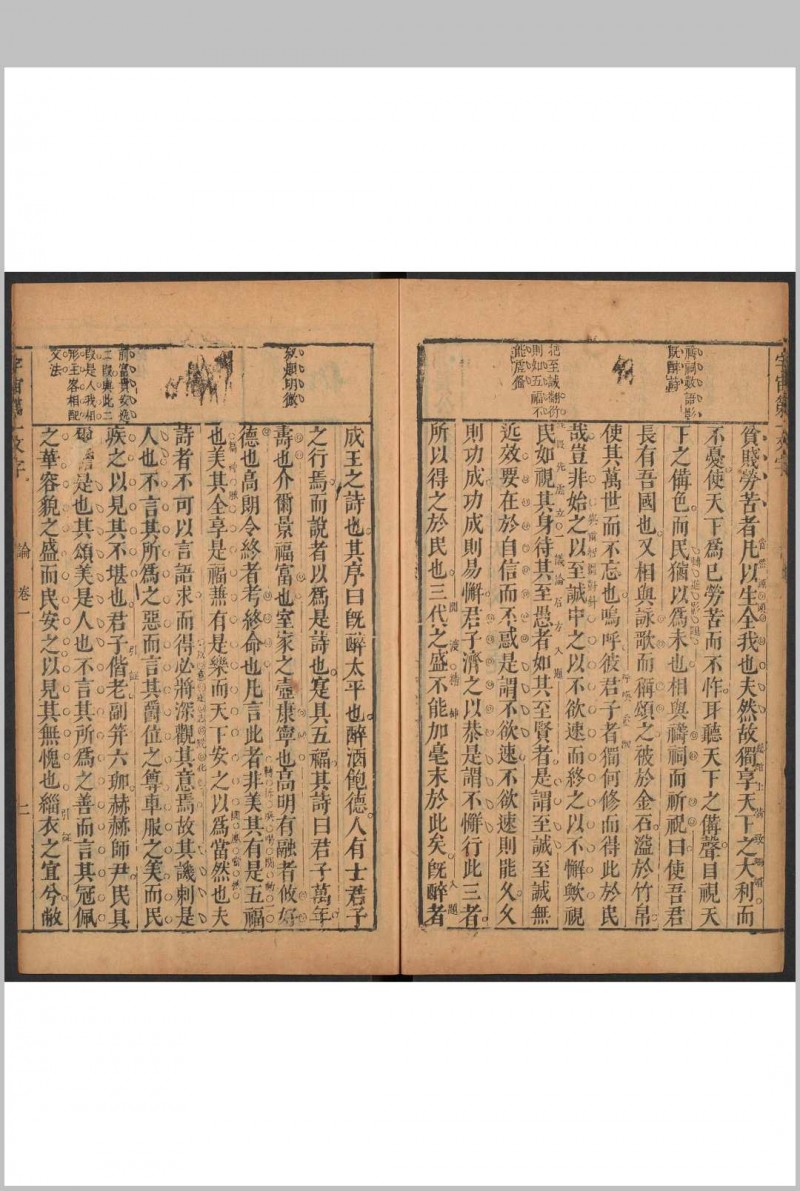 宇宙第一文字
禱祠數語影
旣醉詩
把至誠翻衍
則如五福不
能疊備
貧賤勞苦者凡以生全我也夫然故獨享天下之大利而
不憂使天下爲已勞苦而不怍耳聽天下之備聲目視天
下之備色而民猶以爲未也相與禱祠而祈祝曰使吾君
長有吾國也又相與詠歌而稱頌之被於金石溢於竹帛
使其萬世而不忘也嗚呼彼君子者獨何修而得此於民
哉豈非始之以至誠中之以不欲速而終之以不懈歟視
民如視其身待其至愚者如其至賢者是謂至誠至誠無
近效要在於自信而不惑是謂不欲速不欲速則能久久
則功成功成則易懈君子濟之以恭是謂不懈行此三者
所以得之於民也三代之盛不能加毫末於此矣旣醉者
入題
成王之詩也其序曰旣醉太平也醉酒飽德人有士君子
之行焉而說者以爲是詩也寔具五福其詩曰君子萬年
壽也介爾景福富也室家之壼康寧也高明有融者攸好
德也高朗令終者考終命也凡言此者非美其有是五福
也美其全享是福兼有是樂而天下安之以爲當然也夫
詩者不可以言語求而得必將深觀其意焉故其譏刺是
人也不言其所爲之惡而言其爵位之尊車服之美而民
疾之以見其不堪也君子偕老副笄六珈赫赫師尹民具
是也其頌美是人也不言其所爲之善而言其冠佩
之華容貌之盛而民安之以見其無愧也緇衣之宜兮敝
引証
引証
前富貴安逸
二段與此二
段是人我相
形主客相配
文法
宇宙第一文字
論
卷一
二